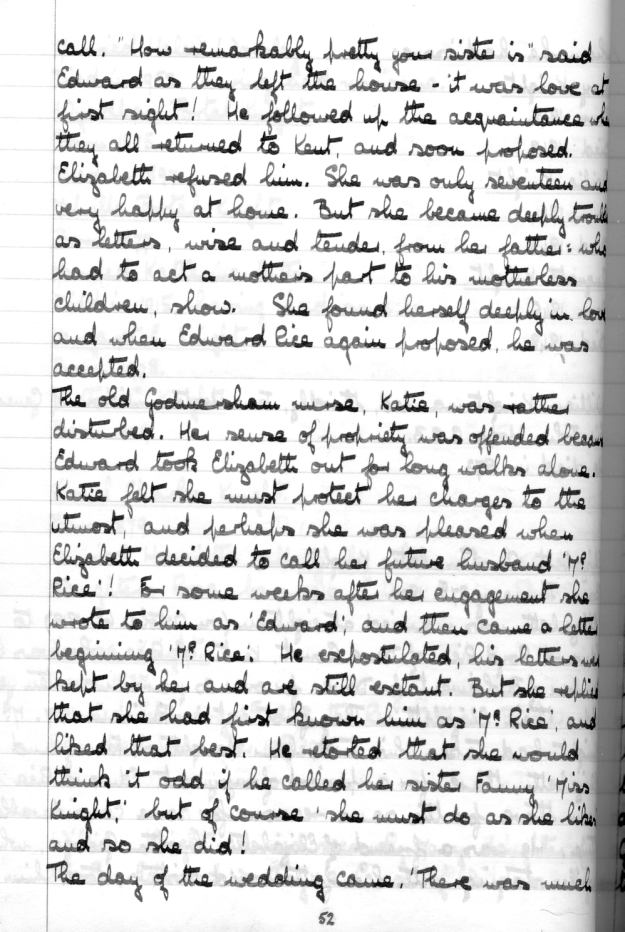 call. "How remarkably pretty your sister is" said
Edward as they left the house - it was love at
first sight! He followed up the acquaintance wh
they all returned to Kent, and soon proposed.
Elizabeth refused him. She was only seventeen and
very happy at home. But she became deeply troub
as letters, wise and tender, from her father: who
had to act a mother's part to his motherless
children, show. She found herself deeply in lov
and when Edward Rice again proposed, he was
accepted.
The old Godmersham nurse, Katie, was rather
disturbed. Her sense of propriety was offended becau
Edward took Elizabeth out for long walks alone.
Katie felt she must protect her charges to the
utmost, and perhaps she was pleased when
Elizabeth decided to call her future husband 'Mr
Rice'! For some weeks after her engagement she
wrote to him as 'Edward', and then came a letter
beginning 'Mr Rice'. He expostulated, his letters we
kept by her and are still extant. But she replied
that she had first known him as 'Mr Rice', and
liked that best. He retorted that she would
think it odd if he called her sister Fanny 'Miss
Knight,' but of course 'she must do as she likes
and so she did!
The day of the wedding came. 'There was much
52